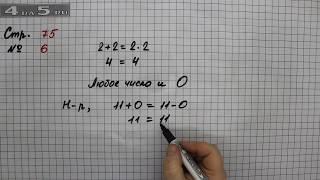 4as5.ru
Стр. 75
№ 6
2+2 = 2·2
4 = 4
Любое число и 0
Н-р, 11+0 = 11-0
11 = 11